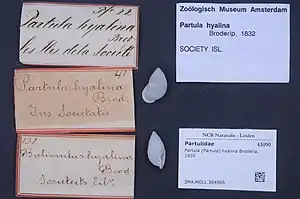 Partula hyalina
Brod.
41
Partula hyalina
Brod.
Ins Societatis
131
Bulimulus hyalina
Brod
Zoölogisch Museum Amsterdam
Partula hyalina
Broderip, 1832
SOCIETY ISL.
NCB Naturalis - Leiden
Partulidae 43090
Partula (Partula) hyalina Broderip,
1832
ZMA.MOLL.384965